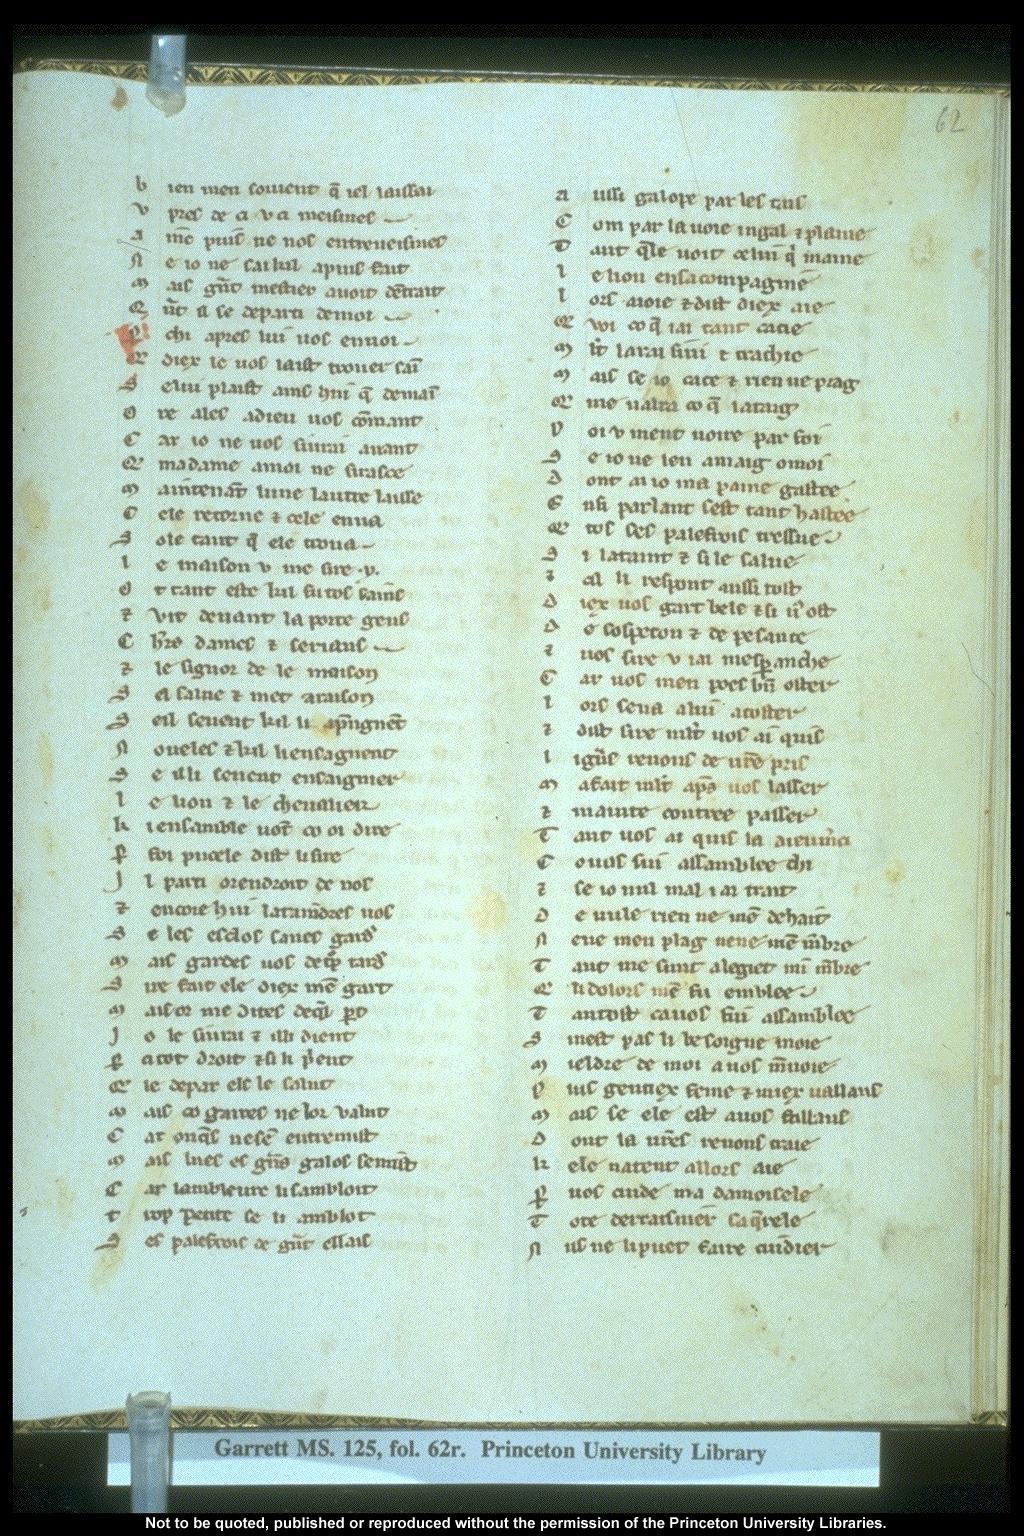 62
b ien men souient q̄ iel laissai
v pres de ci v ci meismes
a me pius ne nos entreueismes
n e io ne sai kil apius fait
m ais gnt mestier auoit dentrait
q nt il se departi demoi
p chi apres lui uos enuoi
q diex le uos laist trouer sai
s elui plaist ains hui q̄ demai
o re ales adieu uos comant
c ar io ne uos siurai auant
q madame amoi ne sirasce
m aintenant lune lautre laisse
c ele retorne ⁊ cele enua
s ole tant q̄ ele troua
l e maison v me sire .y.
o t tant este kil fu tos sains
⁊ vit deuant la porte gens
c hrs dames ⁊ serians
⁊ le signor de le maison
s i salue ⁊ met araison
s eil seuent kil li apregnent
n oueles ⁊ kil li ensagnent
s e il li seuent ensaignier
l e lion ⁊ le cheualier
k i ensamble uot co oi dire
p foi pucele dist li sire
j l parti orendroit de nos
⁊ encore hui lataindres uos
s e les esclos saues garder
m ais gardes uos de tp tarder
s ire fait ele diex men gart
m ais or me dites de q̄l pt
j o le siurai ⁊ il li dient
p acot droit ⁊ si li prient
q le depar els le salut
m ais co gaires ne lor valut
c ar onques ne sen entremist
m ais lues es grans galos semist
c ar lambleure li sambloit
t rop petite se li amblot
s es palefrois de gnt eslais
a ussi galope par les tais
c om par la uoie ingal ⁊ plaine
t ant qle uoit celui q̄ maine
l e lion en sa compagnie
l ors a ioie ⁊ dist diex aie
q voi co q̄ iai tant cacie
m lt larai siui ⁊ trachie
m ais se io cace ⁊ rien ne prag
q me ualra co q̄ iataig
p oi v nient uoire par foi
s e io ne len amaig o moi
d ont ai io ma paine gastee
e nsi parlant sest tant hastee
q tos ses palefrois tressue
s i lataint ⁊ si le salue
⁊ cil li respont aussi tost
d iex uos gart bele ⁊ si uos ost
d e sospecon ⁊ de pesance
⁊ uos sire v iai mesperanche
c ar uos men poes bn oster
l ors seua a lui acoster
⁊ dist sire mlt uos ai quis
l i grans renons de ure pris
m afait mlt apres uos lasser
⁊ mainte contree passer
t ant uos ai quis la dieu mci
c o uos sui assamblee chi
⁊ se io nul mal i ai trait
d e nule rien ne men dehait
n ene men plag nene men mbre
t ant me sunt alegiet mi mbre
q li dolors men fu emblee
t antost ca uos fui assamblee
s inest pas li besoigne moie
m ieldre de moi a uos menuoie
p lus gentiex feme ⁊ miex uallans
m ais se ele est a uos fallans
d ont la ures renons traie
k ele natent aillors aie
p uos cuide ma damoisele
t ote derraisnier sa qrele
n us ne li puet faire cuidier
Garrett MS. 125, fol. 62r. Princeton University Library
Not to be quoted, published or reproduced without the permission of the Princeton University Libraries.